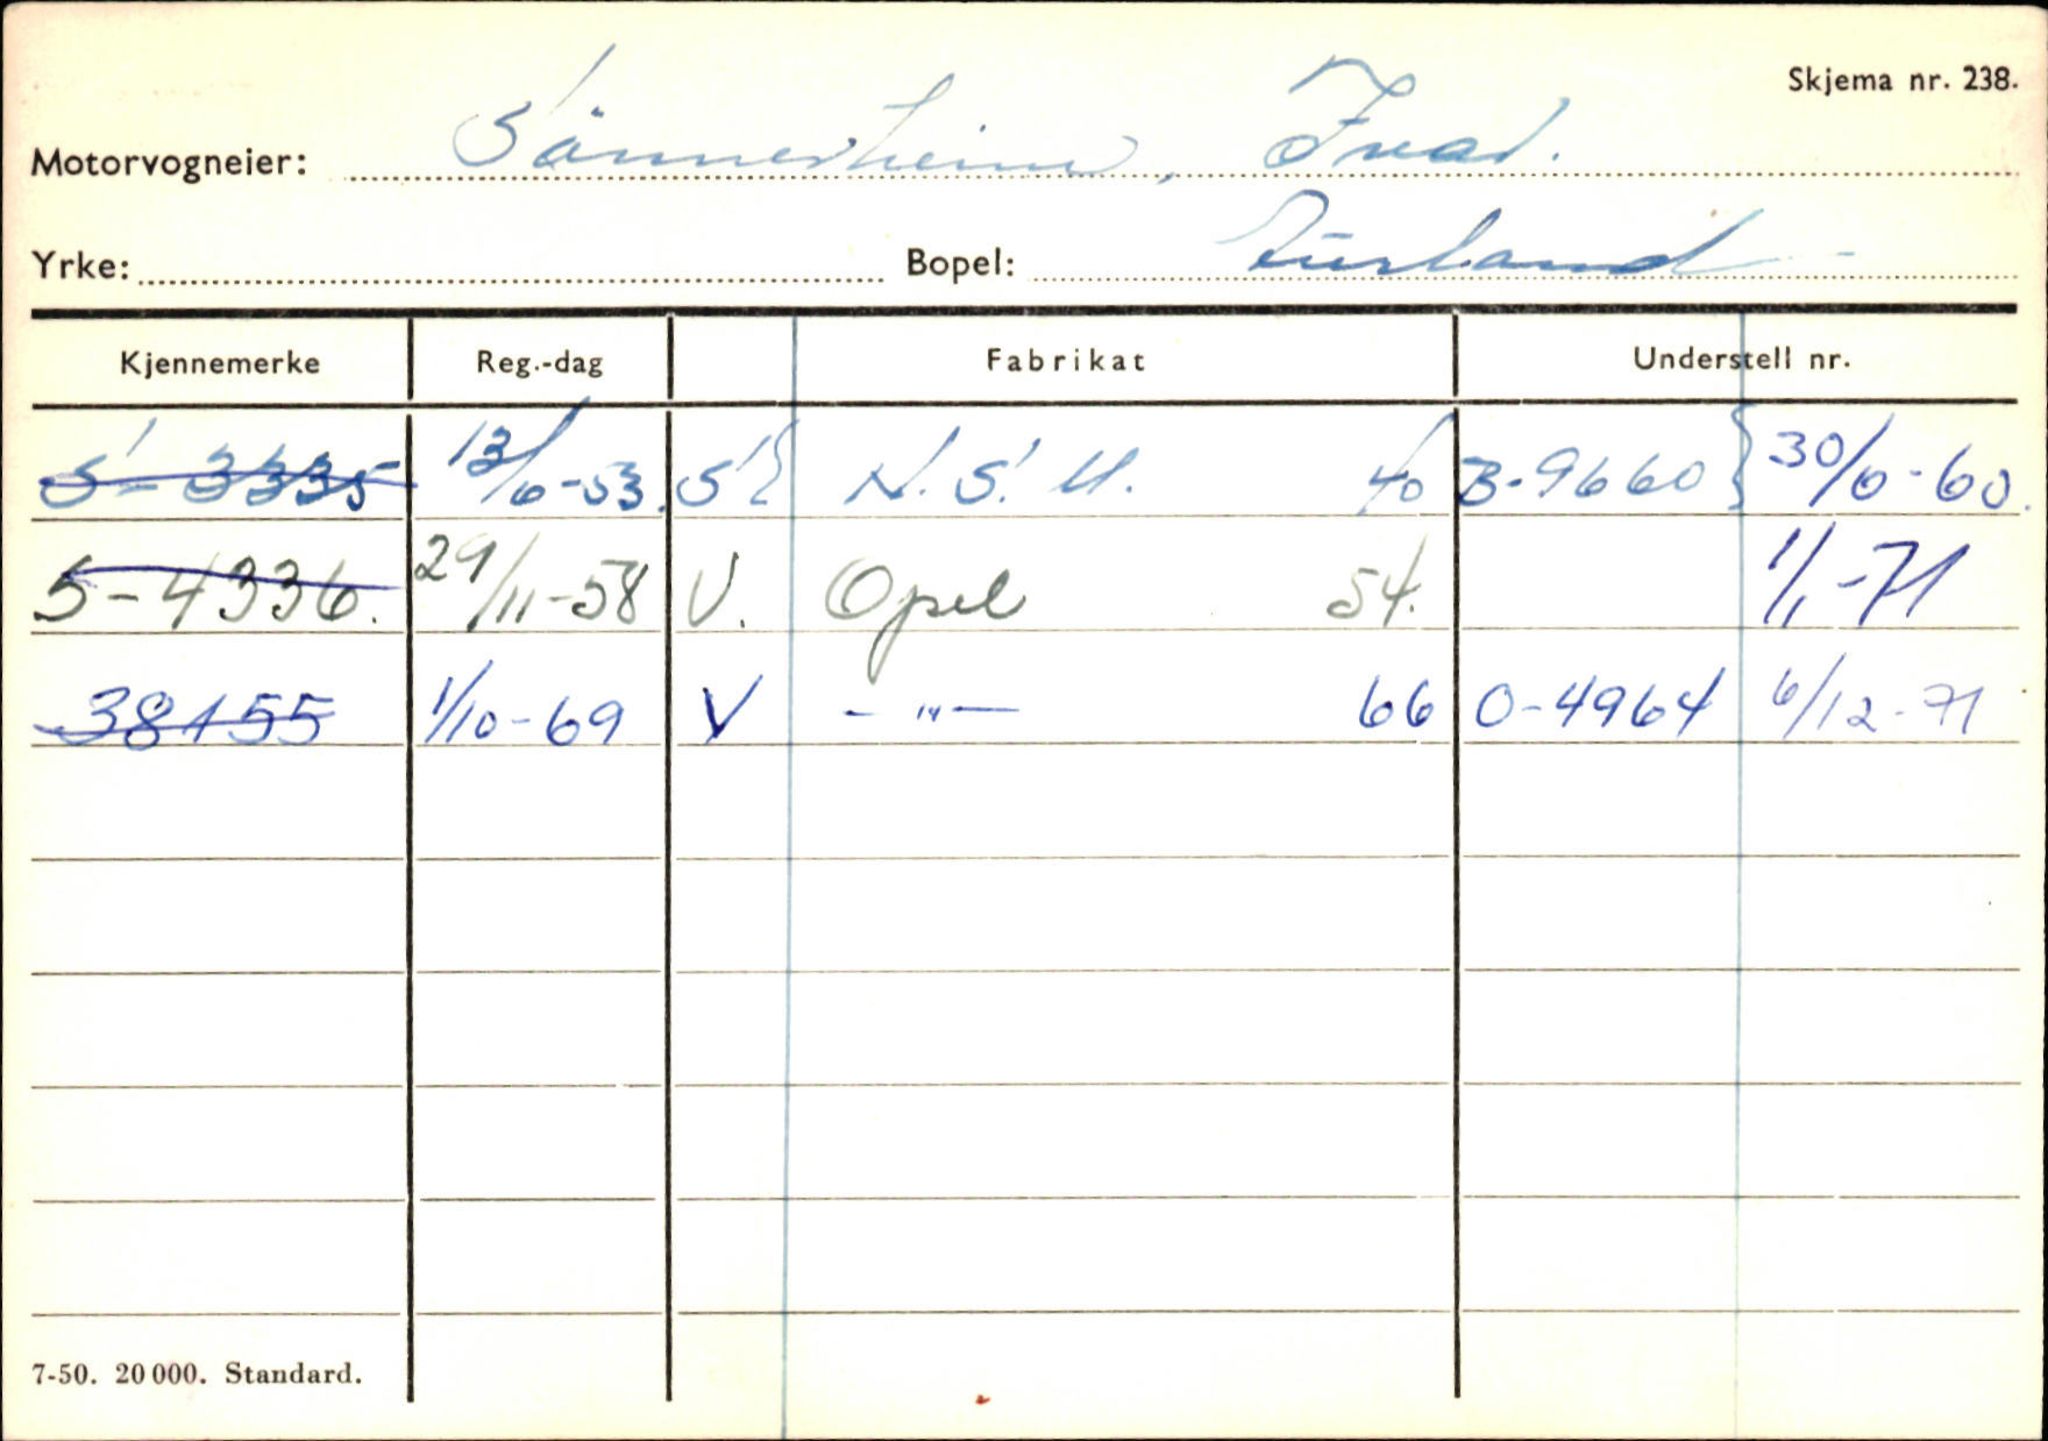 Skjema nr. 238.
Motorvogneier: Sönnerheim, Ivar.
Yrke: Bopel: Aurland
Kjennemerke Reg.-dag Fabrikat Understell nr.
S-3335 13/6-53. S N.S.U. 40 B-9660 } 30/6-60.
S-4336. 29/11-58 V. Opel 54. 1/1-71
38155 1/10-69 V -"- 66 0-4964 6/12-71
7-50. 20 000. Standard.